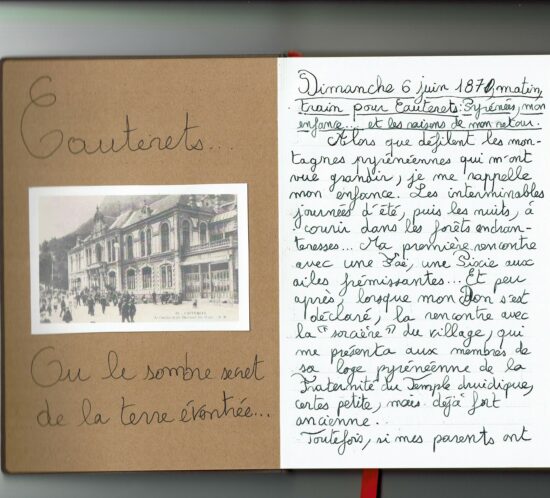 Cauterets...
CAUTERETS
Ou le sombre secret
de la terre éventrée...
Dimanche 6 juin 1870, matin,
train pour Cauterets : Pyrénées, mon
enfance... et les raisons de mon retour.
Alors que défilent les mon-
tagnes pyrénéennes qui m'ont
vue grandir, je me rappelle
mon enfance. Les interminables
journées d'été, puis les nuits, à
courir dans les forêts enchan-
teresses... Ma première rencontre
avec une Faë, une Pixie aux
ailes frémissantes... Et peu
après, lorsque mon Don s'est
déclaré, la rencontre avec
la "sorcière" du village, qui
me présenta aux membres de
sa loge pyrénéenne de la
Fraternité du Temple druidique,
certes petite, mais déjà fort
ancienne.
Toutefois, si mes parents ont